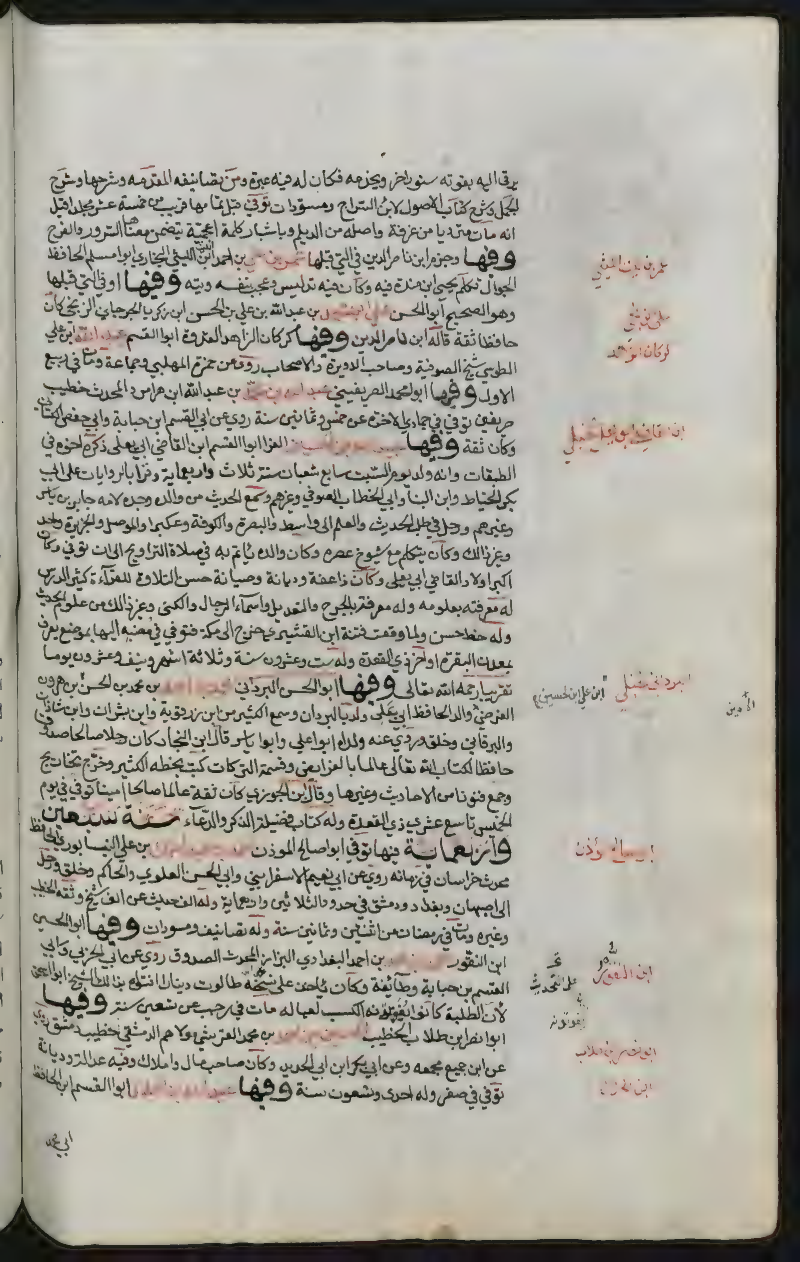 يرقى اليه بقوته سنور اخر ويخدمه فكان له فيه عبرة ومن تصانيفه المقدمه وشرحها وشرح
الجمل وشرح كتاب الاصول لابن السراج ومسودات توفي قبل تمامها قريب من خمسة عشر مجلدا قيل
انه مات مترديا من غرفة واصله من الديلم وبابشاذ كلمة اعجمية يتضمن معناها السرور والفرح
وفيها وجزم ابن ناصر الدين في التي قبلها بن احمد ابن الليثي البخاري ابوا مسلم الحافظ
الجوال تكلم يحيى ابن مندة فيه وكان فيه تدليس وعجب بنفسه وتيه وفيها او في التي قبلها
وهو الصحيح ابو الحسن بن عبد الله بن علي بن الحسن ابن زكريا الجرجاي الزبحي كان
حافظا ثقة قاله ابن ناصر الدين وفيها كركان الزاهد العروف ابوا القسم عبد الله ابن علي
الطوسي شيخ الصوفية وصاحب الدويرة والاصحاب روى عن حمزة المهلبي وجماعة ومات في ربيع
الاول وفيها ابو محمد الصريفيني عبد الله بن محمد بن عبد الله ابن هزامر المحدث خطيب
صريفين توفي في جمادى الاخره عن خمس وثمانين سنة روى عن ابي القسم ابن حبابة وابي حفص الكتان
وكان ثقة وفيها الفرا ابوا القسم ابن القاضي ابي يعلى ذكره اخوه في
الطبقات وانه ولد يوم السبت سابع شعبان سنة ثلاث واربعماية وقرا بالروايات على ابي
بكر الخياط وابن البنا وابي الخطاب الصوفي وغيرهم وسمع الحديث من والده وجده لامه جابر بن ياسر
وغيرهم ورحل في طلب الحديث والعلم الى واسط والبصرة والكوفة وعكبرا والموصل والجزيرة وامد
وغير ذالك وكان يتكلم مع شيوخ عصره وكان والده ياتم به في صلاة التراويح الى ان توفي وكان
اكبر اولاد القاضي ابي يعلى وكان ذا عفة وديانة وصيانة حسن التلاوة للقرآن كثير الدرس
له معرفته بعلومه وله معرفة بالجرح والتعديل واسماء الرجال والكنى وغير ذالك من علوم الحديث
وله خط حسن ولما وقعت فتنة ابن القشيري خرج الى مكة فتوفي في مضيه اليها بموضع يعرف
بمعدن النقرة اواخر ذي القعدة وله ست وعشرون سنة وثلاثة اشهر ونيف وعشرون يوما
تقريبا رحمه الله تعالى وفيها ابو الحسن البرداني بن محمد بن الحسن بن هرون
الفرضي والد الحافظ ابي علي ولد بالبردان وسمع الكثير من ابن رزقوية وابن بشران وابن شاذان
والبرقاني وخلق وروي عنه ولداه ابوا علي وابوا ياسر قال ابن النجار كان رجلا صالحا صدوقا
حافظا لكتاب الله تعالى عالما بالفرايض وقسمة التركات كتب بخطه الكثير وخرج تخاريج
وجمع فنونا من الاحاديث وغيرها وقال ابن الجوزي كان ثقة عالما صالحا امينا توفي في يوم
الخميس تاسع عشري ذي القعدة وله كتاب فضيلة الذكر والدعاء سنة سبعين
واربعماية فيها توفي ابوا صالح المؤذن بن علي النيسابوري الحافظ
محدث خراسان في زمانه روى عن ابي نعيم الاسفرايني وابي الحسن العلوي والحاكم وخلق ورحل
الى اصبهان وبغداد ودمشق في حدود الثلاثين واربعماية وله الف حديث عن الف شيخ وثقه الخطيب
وغيره ومات في رمضان عن اثنين وثمانين سنة وله تصانيف ومسودات وفيها ابو الحسين
ابن النقور بن احمد البغدادي البزاز المحدث الصدوق روى عن ابي الحربي وابي
القسم بن حبابة وطايفة وكان ياخذ على نسخة طالوت دينارا افتاه بذالك الشيخ ابو اسحق
لان الطلبة كانوا يفوتونه الكسب لعياله مات في رجب عن تسعين سنة وفيها
ابوا نصر ابن طلاب الخطيب بن محمد القريشي مولاهم الدمشقي خطيب دمشق روى
عن ابن جميع معجمه وعن ابي بكر ابن ابي الحديد وكان صاحب مال واملاك وفيه عدالة وديانة
توفي في صفر وله احدى وتسعون سنة وفيها ابوا القسم ابن الحافظ
ابي محمد
عمر بن علي الليثي
كركان الزاهد
ابن القاضي ابو يعلى حنبلي
البرداني حنبلي
ابن علي ابن الحسين
ابو صالح المؤذن
ابن النقور
على التحديث
يفوتونه
ابو نصر بن طلاب